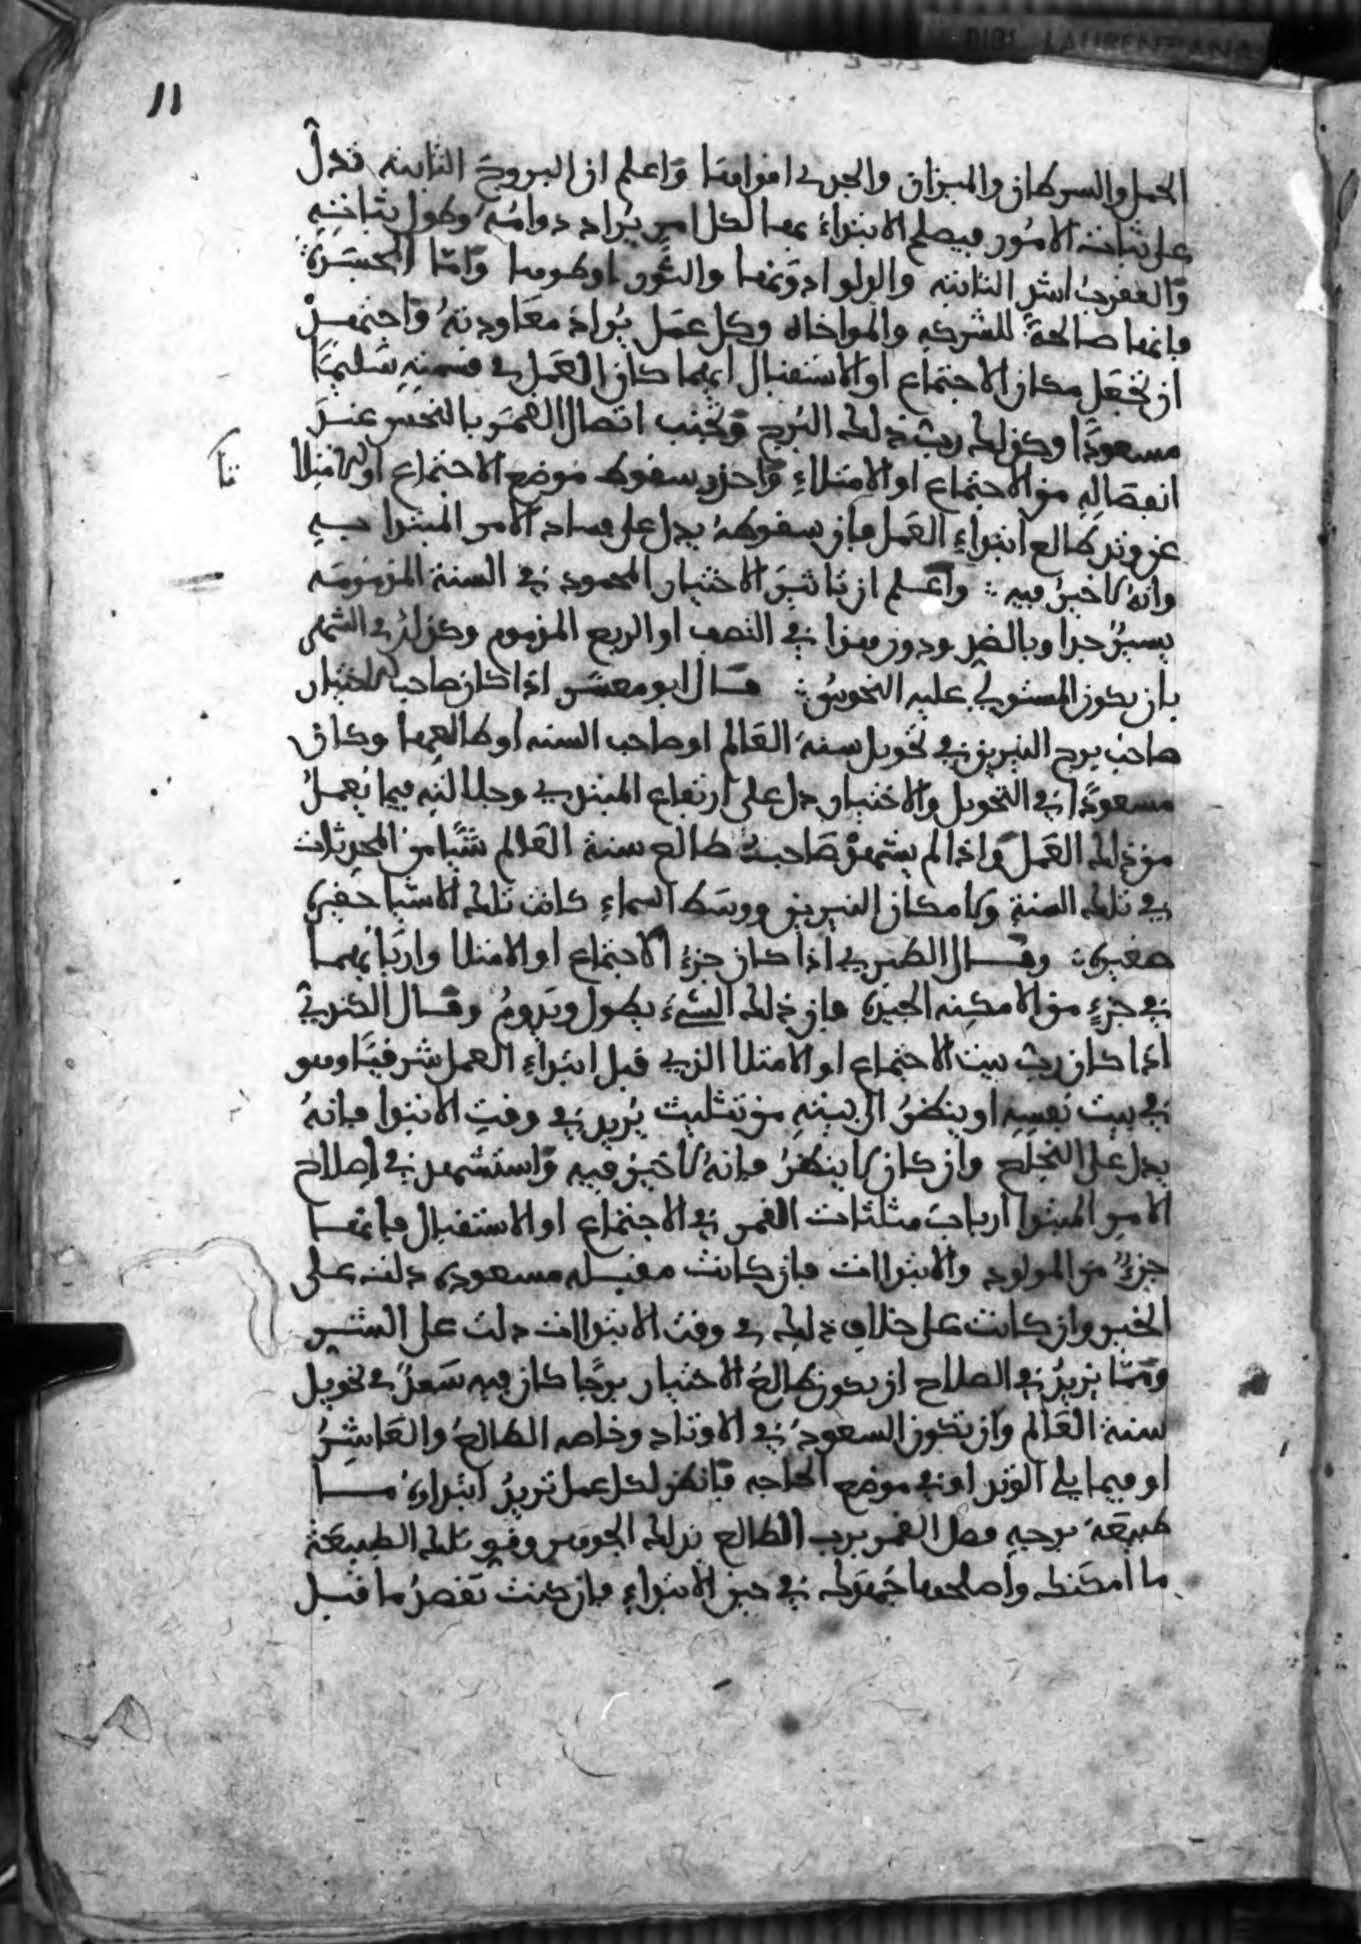 BIBL LAURENZIANA
11
الحمل والسرطان والميزان والجدي اقواها واعلم ان البروج الثابته تدل
على ثبات الامور فيصلح الابتداء بها لكل امر يراد دوامه وطول ثباته
والعقرب اشد الثابته والدلو ادونها والثور اوطوها وامّا المجسدة
فانها صالحة للشركه والمواخاه وكل عمل يراد معاودته واجتهد
ان تجعل مكان الاجتماع او الاستقبال ايهما كان العمل في قسمته سليما
مسعودا وكذلك رب ذلك البرج وتجنب اتصال القمر بالنحس عند
انفصاله من الاجتماع او الامتلاء واحذر سقوط موضع الاجتماع او الامتلا
عن وتد طالع ابتداء العمل فان سقوطه يدل على فساد الامر المبتدا به
وانه لا خير فيه واعلم ان تاثير الاختيار المحمود في السنة المذمومه
يسير جدا وبالضد ودون هذا في النصف او الربع المذموم وكذلك في الشهر
بان يكون المستولي عليه النحوس قال ابو معشر اذا كان صاحب الاختيار
صاحب برج النيرين في تحويل سنة العالم او صاحب السنه او طالعها وكان
مسعودا في التحويل والاختيار دل على ارتفاع المبتدي وجلالته فيما يعمل
من ذلك العمل واذا لم يشهد صاحب طالع سنة العالم شيا من المحدثات
في تلك السنة ولا مكان النيرين ووسط السماء كانت تلك الاشيا حقيرة
صغيرة وقال الطبري اذا كان جزء الاجتماع او الامتلا واربابهما
في جزء من الامكنه الجيدة فان ذلك الشيء يطول ويدوم وقال الكندي
اذا كان رب بيت الاجتماع او الامتلا الذي قبل ابتداء العمل شرقيا وهو
في بيت نفسه او ينظر الى بيته من تثليث يريد في وقت الابتدا فانه
يدل على النجاح وان كان لا ينظر فانه لا خير فيه واستشهد في اصلاح
الامر المبتدا ارباب مثلثات القمر في الاجتماع او الاستقبال فانها
جزء من المولود والابتداات فان كانت مقبله مسعودة دلت على
الخير وان كانت على خلاف ذلك في وقت الابتداات دلت على الشر
وممّا يزيد في الصلاح ان يكون طالع الاختيار برجا كان فيه سعد في تحويل
سنة العالم وان تكون السعود في الاوتاد وخاصه الطالع والعاشر
او فيما يلي الوتد او في موضع الحاجه فانظر لكل عمل تريد ابتداءه ما
طبيعة برجه فصل القمر برب الطالع بذلك الجوهر وقو تلك الطبيعة
ما امكنك واصلحها جهدك في حين الابتداء فان كنت تقصد ما قبل